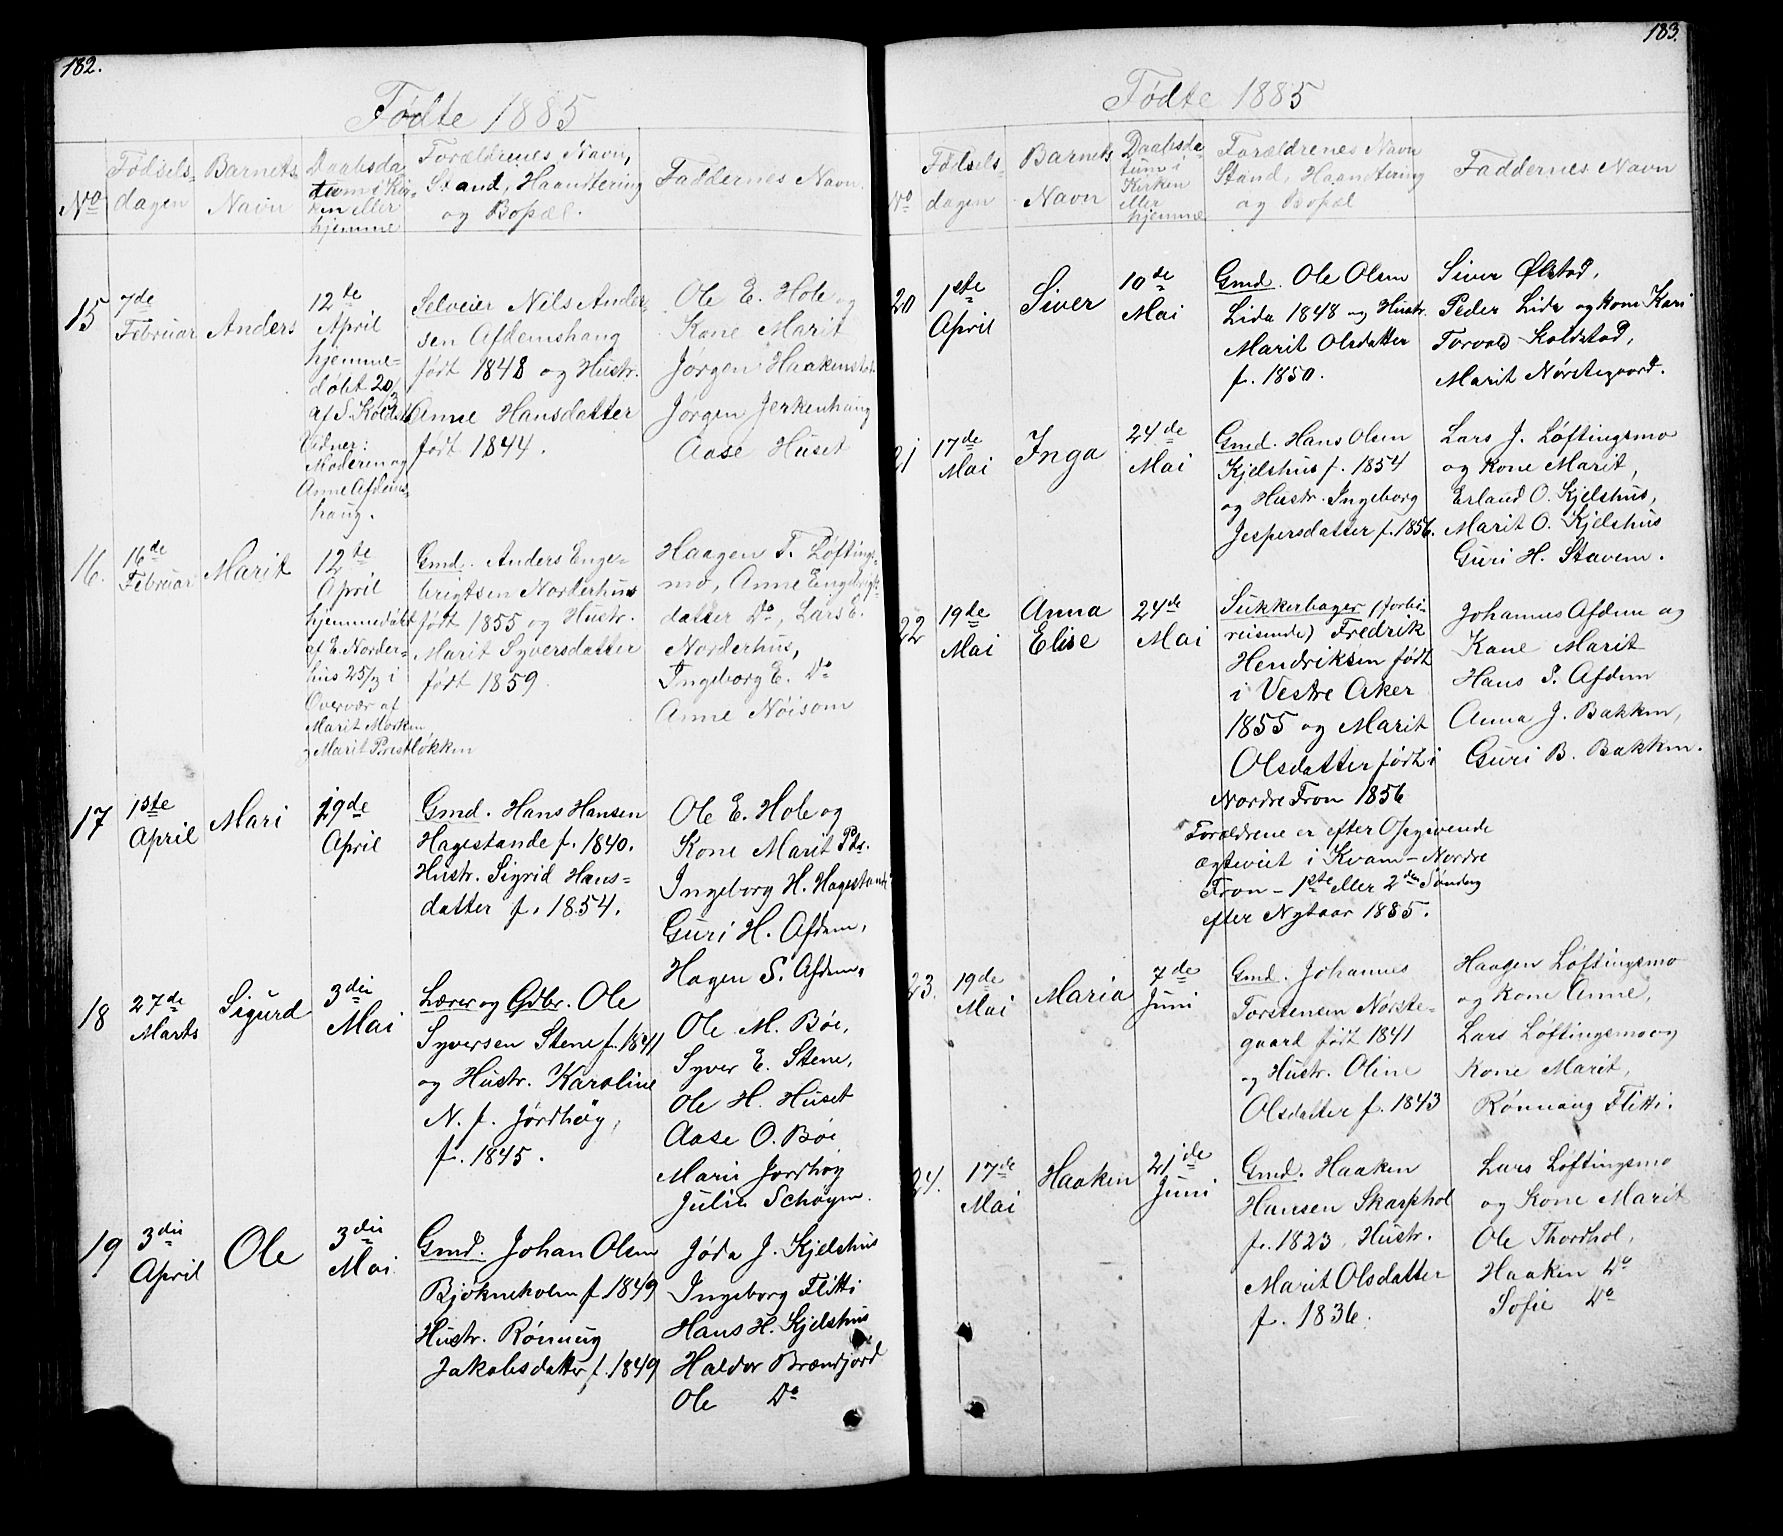 182.
Fødte 1885
No
Fødsels-
dagen
Barnets
Navn
Daabsda-
tum i Kir-
ken eller
hjemme
Forældrenes Navn,
Stand, Haandtering
og Bopæl.
Faddernes Navn.
15
7de
Februar
Anders
12te
April
hjemme-
døbt 20/3
af S. Kolds
Vidner:
Moderen og
Anne Afdems-
haug.
Selveier Nils Ander-
sen Afdemshaug
født 1848 og Hustr.
Anne Hansdatter
født 1844.
Ole E. Hole og
Kone Marit
Jørgen Haakenstad
Jørgen Jerkenhaug
Aase Huset
16.
16de
Februar
Marit
12te
April
hjemmedøbt
af E. Norder-
hus 25/3 i
Overvær af
Marit Morken
og Marit Prestløkken
Gmd. Anders Enge-
brigtsen Norderhus
født 1855 og Hustr.
Marit Syversdatter
født 1859.
Haagen T. Løftings-
mo, Anne Engebrigts-
datter Do, Lars E.
Norderhus,
Ingeborg E. Do
Anne Nøisom
17
1ste
April
Mari
19de
April
Gmd. Hans Hansen
Hagestande f. 1840.
Hustr. Sigrid Hans-
datter f. 1854.
Ole E. Hole og
Kone Marit Pdr.
Ingeborg H. Hagestande
Guri H. Afdem,
Hagen S. Afdem.
18
27de
Marts
Sigurd
3die
Mai
Lærer og Gdbr. Ole
Syversen Stene f. 1841
og Hustr. Karoline
N. f. Jørdhøy,
f. 1845.
Ole M. Bøe,
Syver E. Stene,
Ole H. Huset
Aase O. Bøe
Mari Jordhøy
Julie Schøyen.
19
3die
April
Ole
3die
Mai.
Gmd. Johan Olsen
Bjøkneholen f. 1849
Hustr. Rønnug
Jakobsdatter f. 1849
Jøda J. Kjelshus
Ingeborg Flitti
Hans H. Kjelshus
Haldor Brændjord
Ole Do
183.
Fødte 1885
No
Fødsels-
dagen
Barnets
Navn
Daabsda-
tum i
Kirken
eller
hjemme
Forældrenes Navn
Stand, Haandtering
og Bopæl
Faddernes Navn
20
1ste
April
Siver
10de
Mai
Gmd. Ole Olsen
Lida 1848 og Hustr.
Marit Olsdatter
f. 1850.
Siver Ølstad,
Peder Lida og kone Kari
Torvald Koldstad,
Marit Nørstegaard.
21
17de
Mai
Inga
24de
Mai
Gmd. Hans Olsen
Kjelshus f. 1854
og Hustr. Ingeborg
Jespersdatter f. 1856.
Lars J. Løftingsmo
og Kone Marit,
Erland O. Kjelshus,
Marit O. Kjelshus
Guri H. Stavem.
22
19de
Mai
Anna
Elise
24de
Mai
Sukkerbager (forbi-
reisende) Fredrik
Hendriksen født
i Vestre Aker
1855 og Marit
Olsdatter født i
Nordre Fron 1856
Forældrene er efter Opgivende
ægteviet i Kvam - Nordre
Fron - 1ste eller 2den Søndag
efter Nytaar 1885.
Johannes Afdem og
Kone Marit
Hans S. Afdem
Anna J. Bakken,
Guri B. Bakken.
23.
19de
Mai
Maria
7de
Juni
Gmd. Johannes
Torstensen Nørste-
gaard født 1841
og Hustr. Oline
Olsdatter f. 1843
Haagen Løftingsmo
og kone Anne,
Lars Løftingsmo og
Kone Marit,
Rønnaug Flitti.
24.
17de
Mai
Haaken
21de
Juni
Gmd. Haaken
Hansen Skarphol
f. 1823, Hustr.
Marit Olsdatter
f. 1836.
Lars Løftingsmo
og Kone Marit
Ole Thordhol,
Haaken Do
Sofie Do